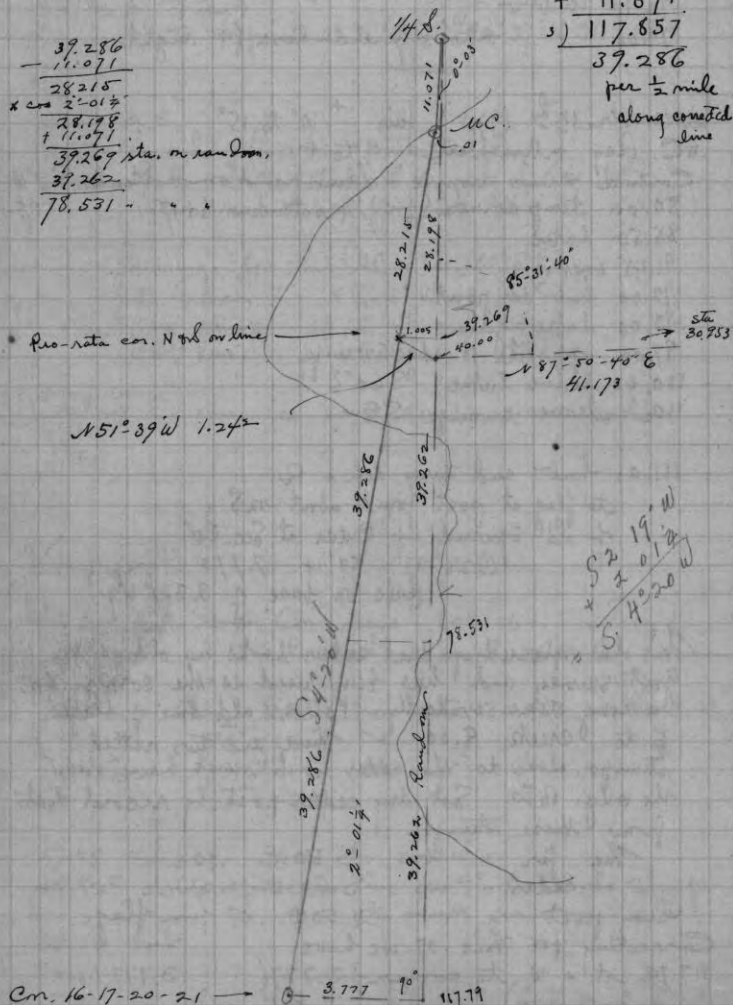 39.286
- 11.071
28215
x cos 2°-01½'
28.198
+ 11.071
39.269 sta. on random.
39.262
78.531 " " "
1/4 S.
+ 11.071
3) 117.857
39.286
per ½ mile
along corrected
line
11.071
0°-03'
M.C.
.01
28.215
28.198
85°-31'-40"
Pro-rata cor. N & S on line
1.005
39.269
40.00
sta
30.953
N 87°-50'-40" E
41.173
N 51°-39' W 1.24½
39.286
39.262
S 2 19' W
x 2 01½
S. 4°-20 W
78.531
S 4°-20' W
39.286
2°-01½'
Random
39.262
Cor. 16-17-20-21
3.777
90°
117.79